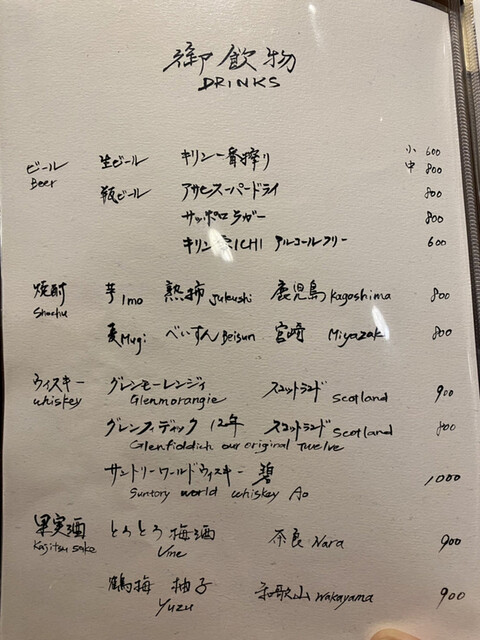 御飲物
DRINKS
ビール 生ビール キリン一番搾り 小 600
Beer 中 800
瓶ビール アサヒスーパードライ 800
サッポロラガー 800
キリン零ICHI アルコールフリー 600
焼酎 芋 Imo 熟柿 Jukushi 鹿児島 Kagoshima 800
Shochu
麦 Mugi べいすん Beisun 宮崎 Miyazaki 800
ウィスキー グレンモーレンジィ スコットランド Scotland 900
whiskey Glenmorangie
グレンフィディック 12年 スコットランド Scotland 800
Glenfiddich our original Twelve
サントリーワールドウィスキー 碧 1000
Suntory world whiskey Ao
果実酒 とろとろ梅酒 奈良 Nara 900
Kajitsu sake Ume
鶴梅 柚子 和歌山 Wakayama 900
Yuzu